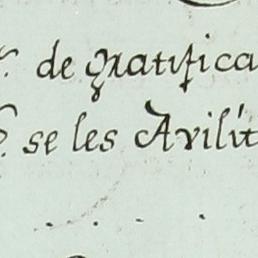 de gratifica
se les Avilit